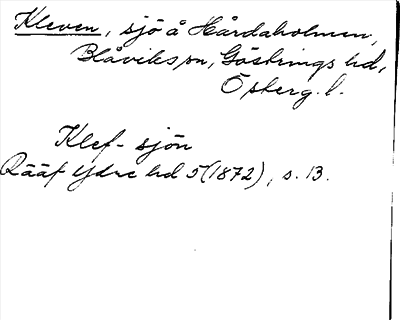 Kleven, sjö å Hårdaholmen,
Blåviks sn, Göstrings hd,
Östergl.
Klef-sjön
Rääf Ydre hd 5 (1872), s. 13.